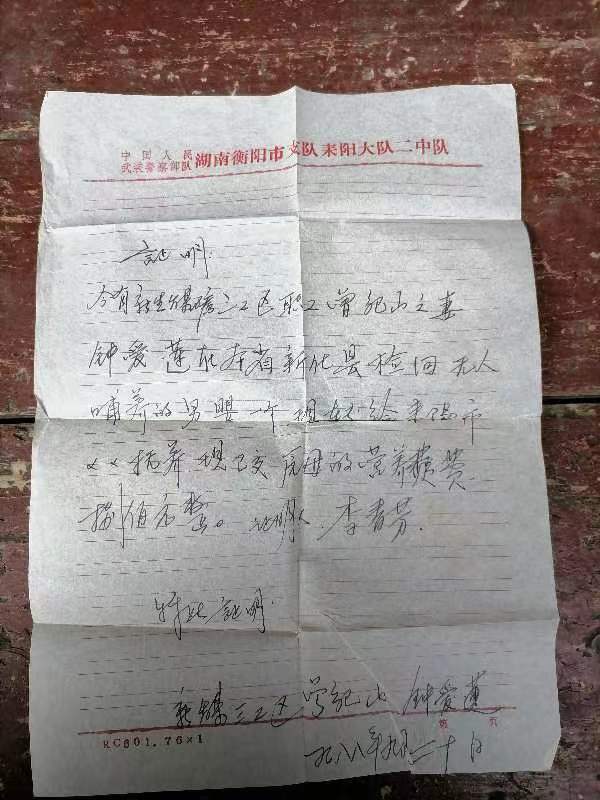 中国人民
武装警察部队 湖南衡阳市支队耒阳大队二中队
証明
今有新生煤矿三工区职工曾纪山之妻
钟爱莲在本省新化县检回无人
哺养的男婴一个 现 给耒阳市
××抚养 现已交 母的营养费
佰元整。 李春芳.
特此証明.
新煤三工区 曾纪山 钟爱莲
第 页
RC601.76×1
一九八八年九月二十日